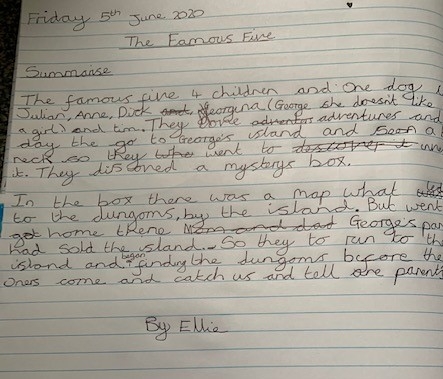 Friday 5th June 2020
The Famous Five
Summarise
The famous five 4 children and one dog
Julian, Anne, Dick and Georgina (George she doesn't like
a girl) and tim. They adventures and
day the go to George's island and seen a
reck so they went to
it. They discored a mysterys box.
In the box there was a map what
to the dungoms, by the island. But went
got home there Mom and dad George's par
had sold the island. So they to run to th
island and began findy the dungoms before the
oners come and catch us and tell parents
By Ellie